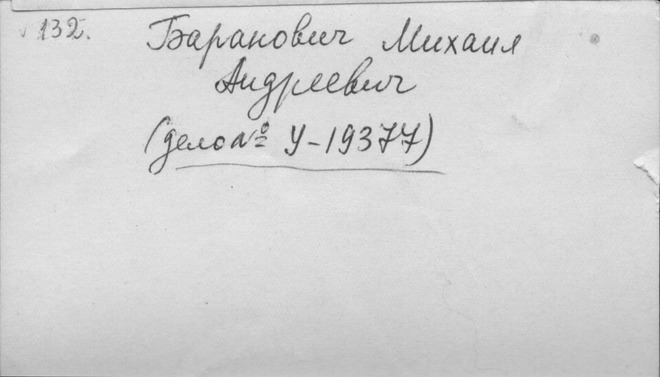 132.
Баранович Михаил
Андреевич
(дело № У-19377)